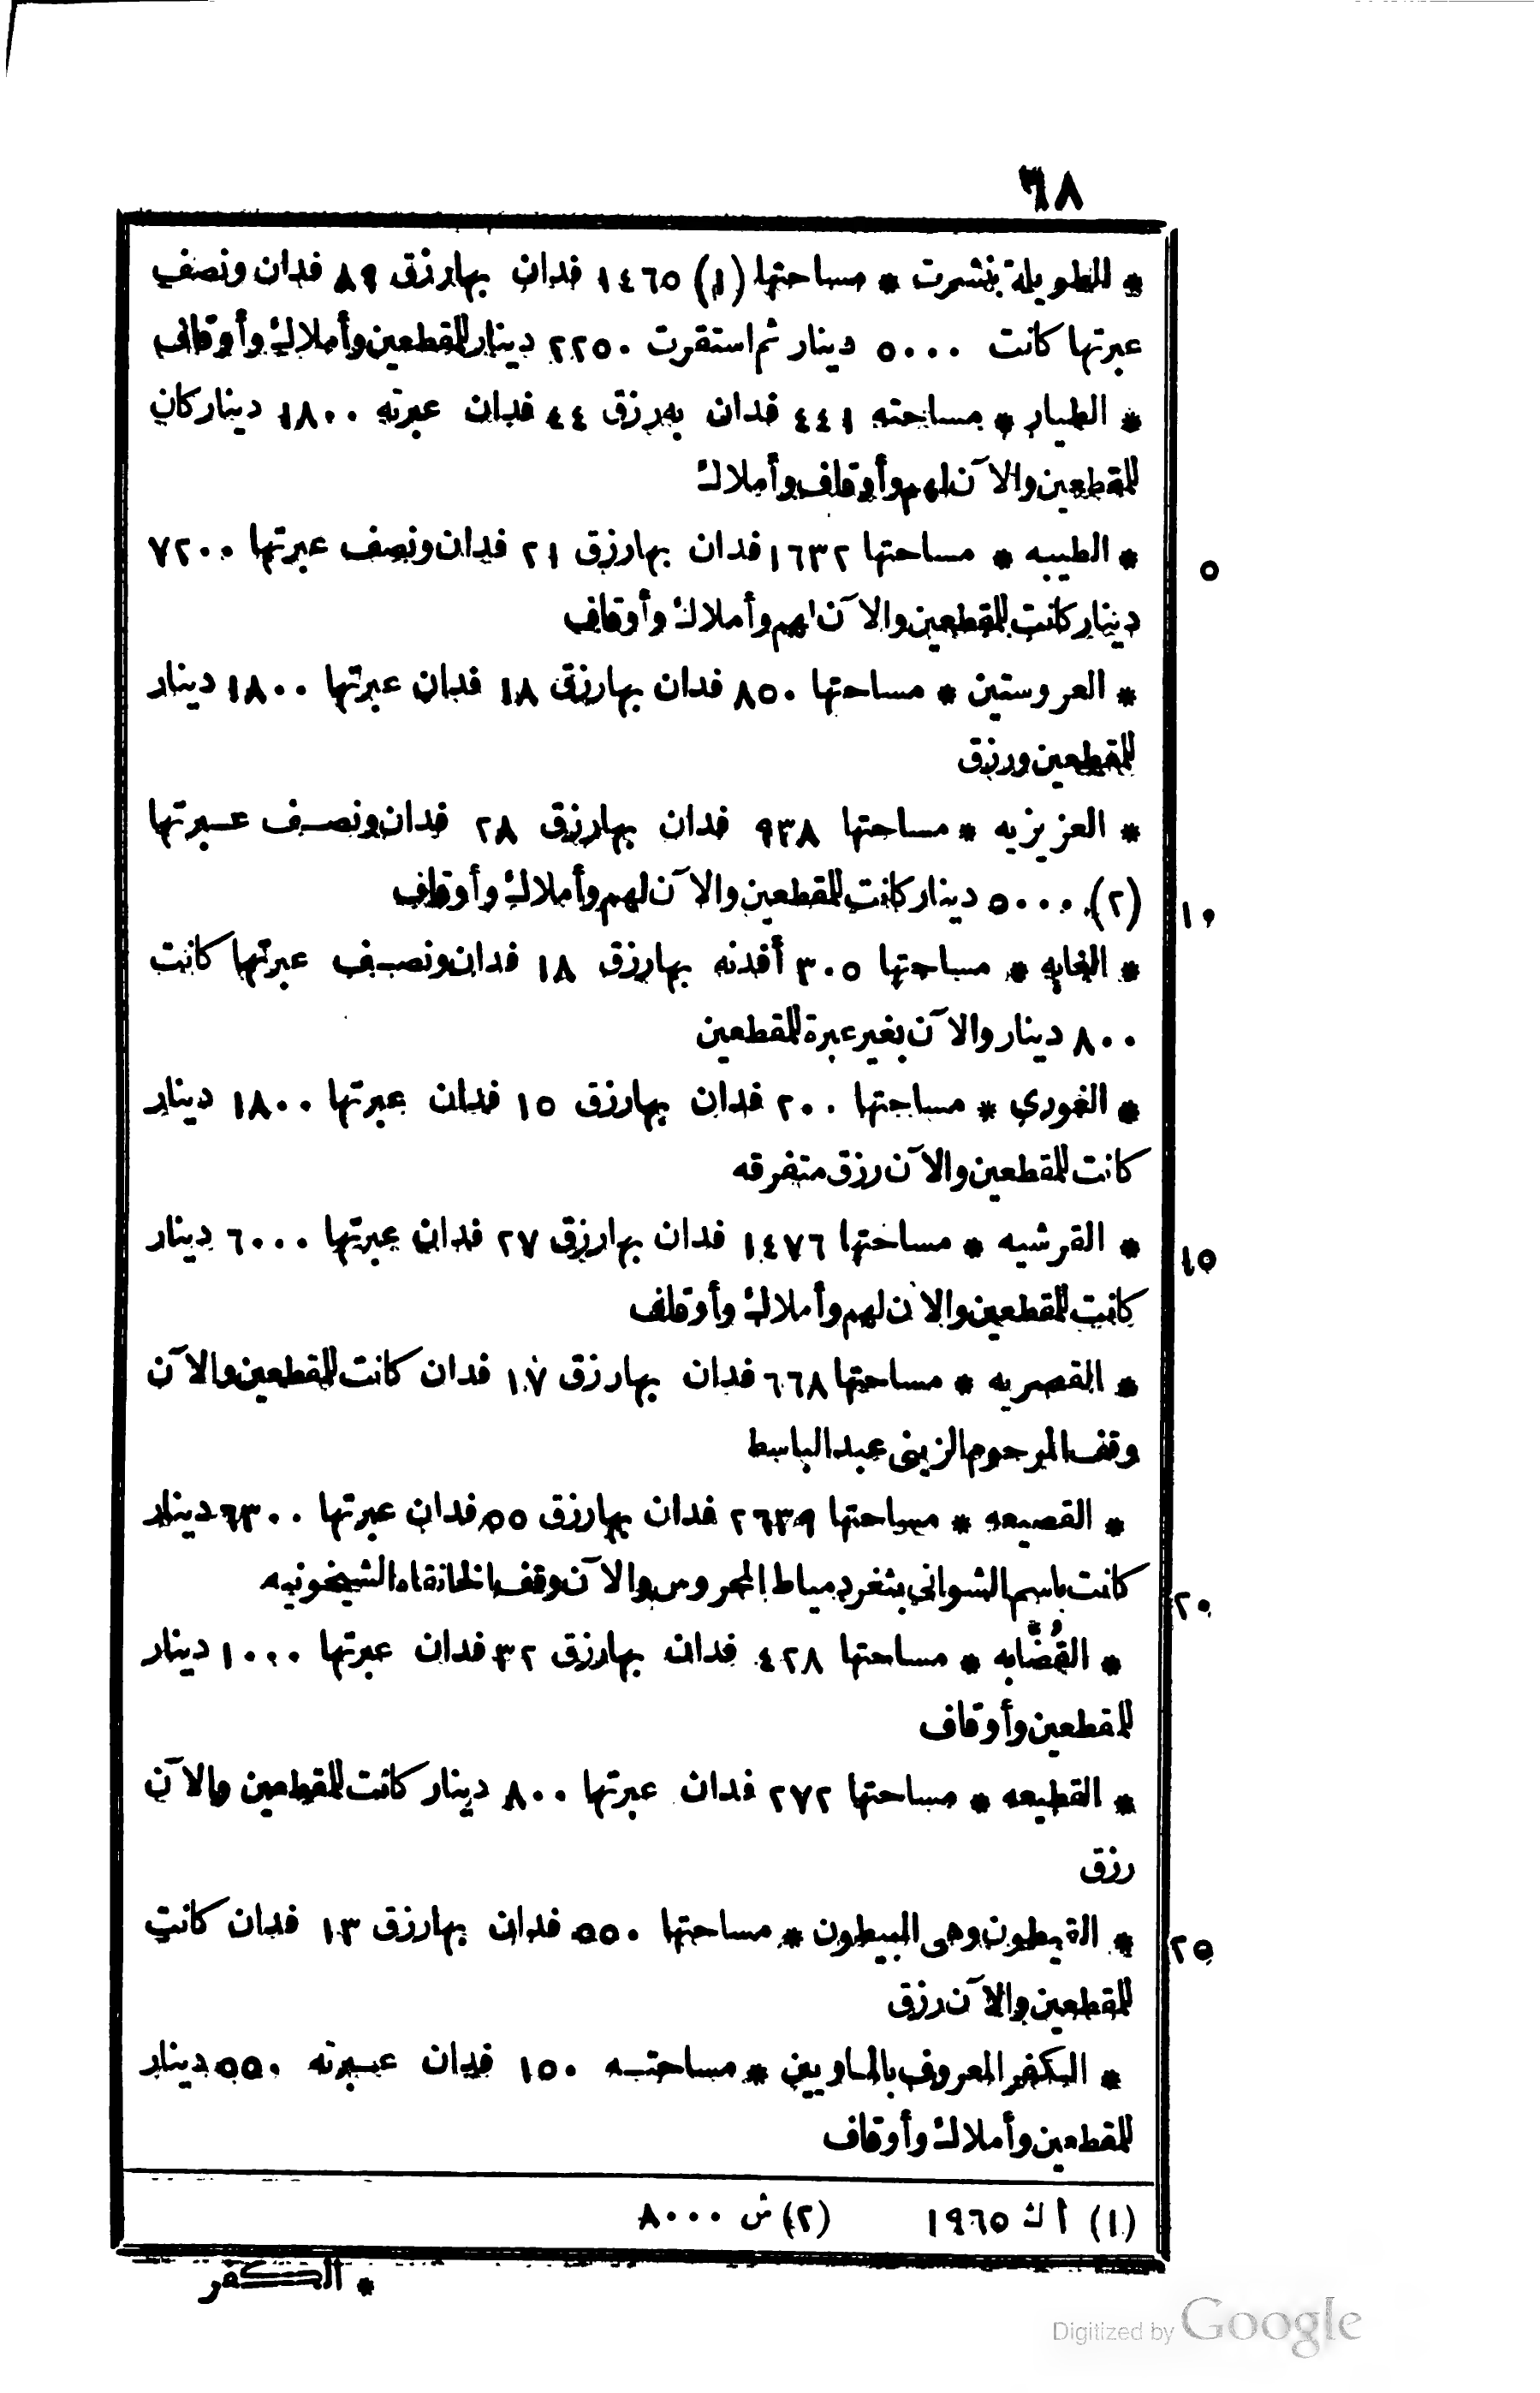 ٦٨
* الطويلة بنشرت * مساحتها (١) ١٤٦٥ فدان بهارزق ٨٩ فدان ونصف
عبرتها كانت ٥٠٠٠ دينار ثم استقرت ٢٢٥٠ دينار للمقطعين وأملاك وأوقاف
* الطيار * مساحته ٤٤١ فدان به رزق ٤٤ فدان عبرته ١٨٠٠ دينار كان
للمقطعين والآن لهم وأوقاف وأملاك
* الطيبه * مساحتها ١٦٣٢ فدان بهارزق ٢١ فدان ونصف عبرتها ٧٢٠٠
٥
دينار كانت للمقطعين والآن لهم وأملاك وأوقاف
* العروستين * مساحتها ٨٥٠ فدان بهارزق ١٨ فدان عبرتها ١٨٠٠ دينار
للمقطعين ورزق
* العزيزيه * مساحتها ٩٣٨ فدان بهارزق ٢٨ فدان ونصف عبرتها
(٢) ٥٠٠٠ دينار كانت للمقطعين والآن لهم وأملاك وأوقاف
١٠
* الغابه * مساحتها ٣٠٥ أفدنه بهارزق ١٨ فدان ونصف عبرتها كانت
٨٠٠ دينار والآن بغير عبرة للمقطعين
* الغوري * مساحتها ٢٠٠ فدان بهارزق ١٥ فدان عبرتها ١٨٠٠ دينار
كانت للمقطعين والآن رزق متفرقه
* القرشيه * مساحتها ١٤٧٦ فدان بهارزق ٢٧ فدان عبرتها ٦٠٠٠ دينار
١٥
كانت للمقطعين والان لهم وأملاك وأوقاف
* القصريه * مساحتها ٦٦٨ فدان بهارزق ١٧ فدان كانت للمقطعين والآن
وقف المرحوم الزينى عبد الباسط
* القصيعه * مساحتها ٢٦٣٩ فدان بهارزق ٥٥ فدان عبرتها ٦٣٠٠ دينار
كانت باسم الشوانى بثغر دمياط المحروس والآن وقف الخانقاه الشيخونيه
٢٠
* القُضَّابه * مساحتها ٤٢٨ فدان بهارزق ٣٢ فدان عبرتها ١٠٠٠ دينار
للمقطعين وأوقاف
* القطيعه * مساحتها ٢٧٢ فدان عبرتها ٨٠٠ دينار كانت للمقطعين والآن
رزق
* القيطون وهى البيطون * مساحتها ٥٥٠ فدان بهارزق ١٣ فدان كانت
٢٥
للمقطعين والآن رزق
* الكفر المعروف بالماويين * مساحتـه ١٥٠ فدان عبرته ٥٥٠ دينار
للمقطعين وأملاك وأوقاف
(١) أ ك ١٩٦٥ (٢) ش ٨٠٠٠
* الكفر
Digitized by Google